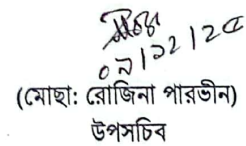 ০৭/১২/২৫
(মোছা: রোজিনা পারভীন)
উপসচিব